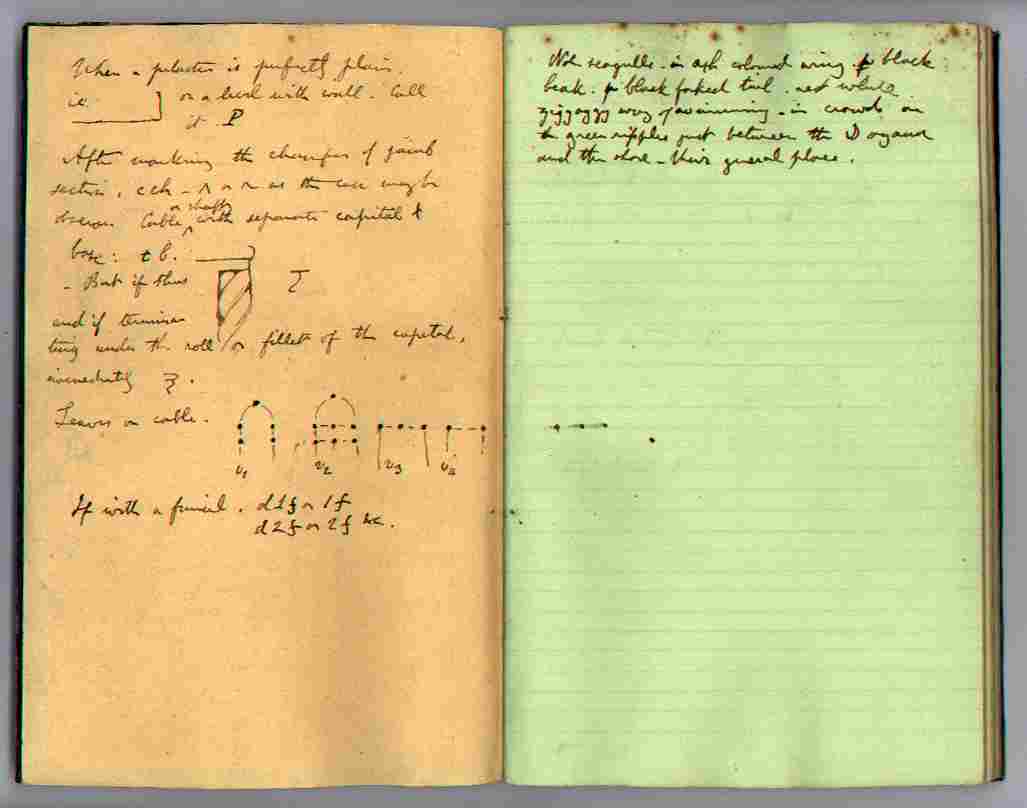 When a pilaster is perfectly plain.
ie. on a level with wall. Call
it P
After marking the chamfer of jamb
section, cch - or as the case may be
observe Cable, or shaft with separate capital &
base: t b.
- But if thus
and if termina
ting under the roll or fillet of the capital,
immediately
Leaves on cable.
v1 v2 v3 v4
If with a finial. d1f or 1f
d2f or 2f &c.
Note seagulls - in ash coloured wing black
beak. black forked tail. rest white
zigzaggy way of swimming - in crowds in
the green ripples just between the D organa
and the shore - their general place.